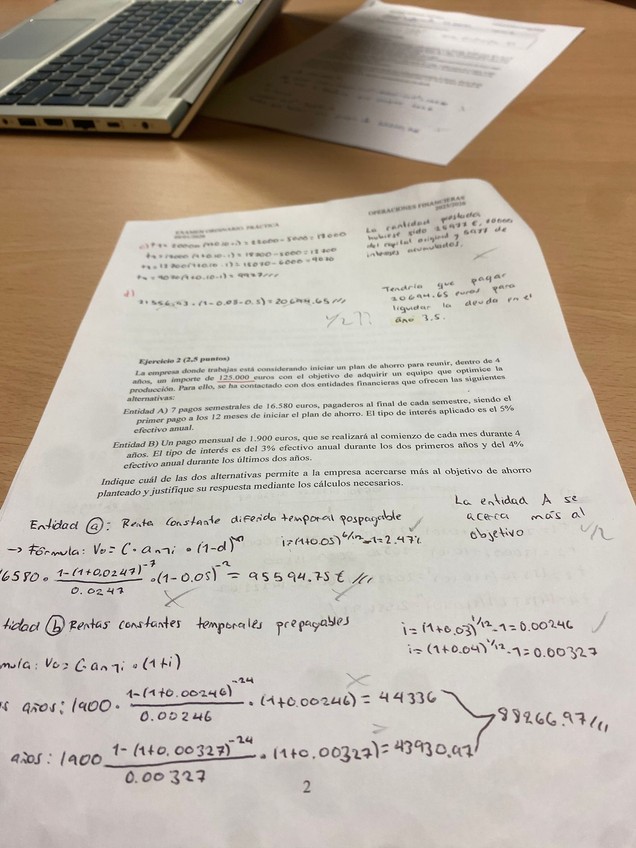 EXAMEN ORDINARIO. PRÁCTICA
OPERACIONES FINANCIERAS
2025/2026
La cantidad prestada
hubiese sido 25977 €, 20000
del capital original y 5977 de
intereses acumulados.
d)
(1-0.08·0.5)=20694.65///
Tendría que pagar
20694.65 euros para
liquidar la deuda en el
año 3,5.
1/2??
Ejercicio 2 (2,5 puntos)
La empresa donde trabajas está considerando iniciar un plan de ahorro para reunir, dentro de 4
años, un importe de 125.000 euros con el objetivo de adquirir un equipo que optimice la
producción. Para ello, se ha contactado con dos entidades financieras que ofrecen las siguientes
alternativas:
Entidad A) 7 pagos semestrales de 16.580 euros, pagaderos al final de cada semestre, siendo el
primer pago a los 12 meses de iniciar el plan de ahorro. El tipo de interés aplicado es el 5%
efectivo anual.
Entidad B) Un pago mensual de 1.900 euros, que se realizará al comienzo de cada mes durante 4
años. El tipo de interés es del 3% efectivo anual durante los dos primeros años y del 4%
efectivo anual durante los últimos dos años.
Indique cuál de las dos alternativas permite a la empresa acercarse más al objetivo de ahorro
planteado y justifique su respuesta mediante los cálculos necesarios.
La entidad A se
acerca más al
objetivo
1/2
Entidad ⓐ: Renta constante diferida temporal pospagable
→ Fórmula: V₀= C·a n¬i · (1-d)ᵐ
i=(1+0.05)^6/12-1=2.47%
6580 · 1-(1+0.0247)^-7 / 0.0247 · (1-0.05)^-2 = 95594.75€ ///
tidad ⓑ Rentas constantes temporales prepagables
i=(1+0.03)^1/12-1=0.00246
i=(1+0.04)^1/12-1=0.00327
mula: V₀= C a n¬i · (1+i)
s años: 1900 · 1-(1+0.00246)^-24 / 0.00246 · (1+0.00246) = 44336
88266.97///
años: 1900 1-(1+0.00327)^-24 / 0.00327 · (1+0.00327)=43930.97
2